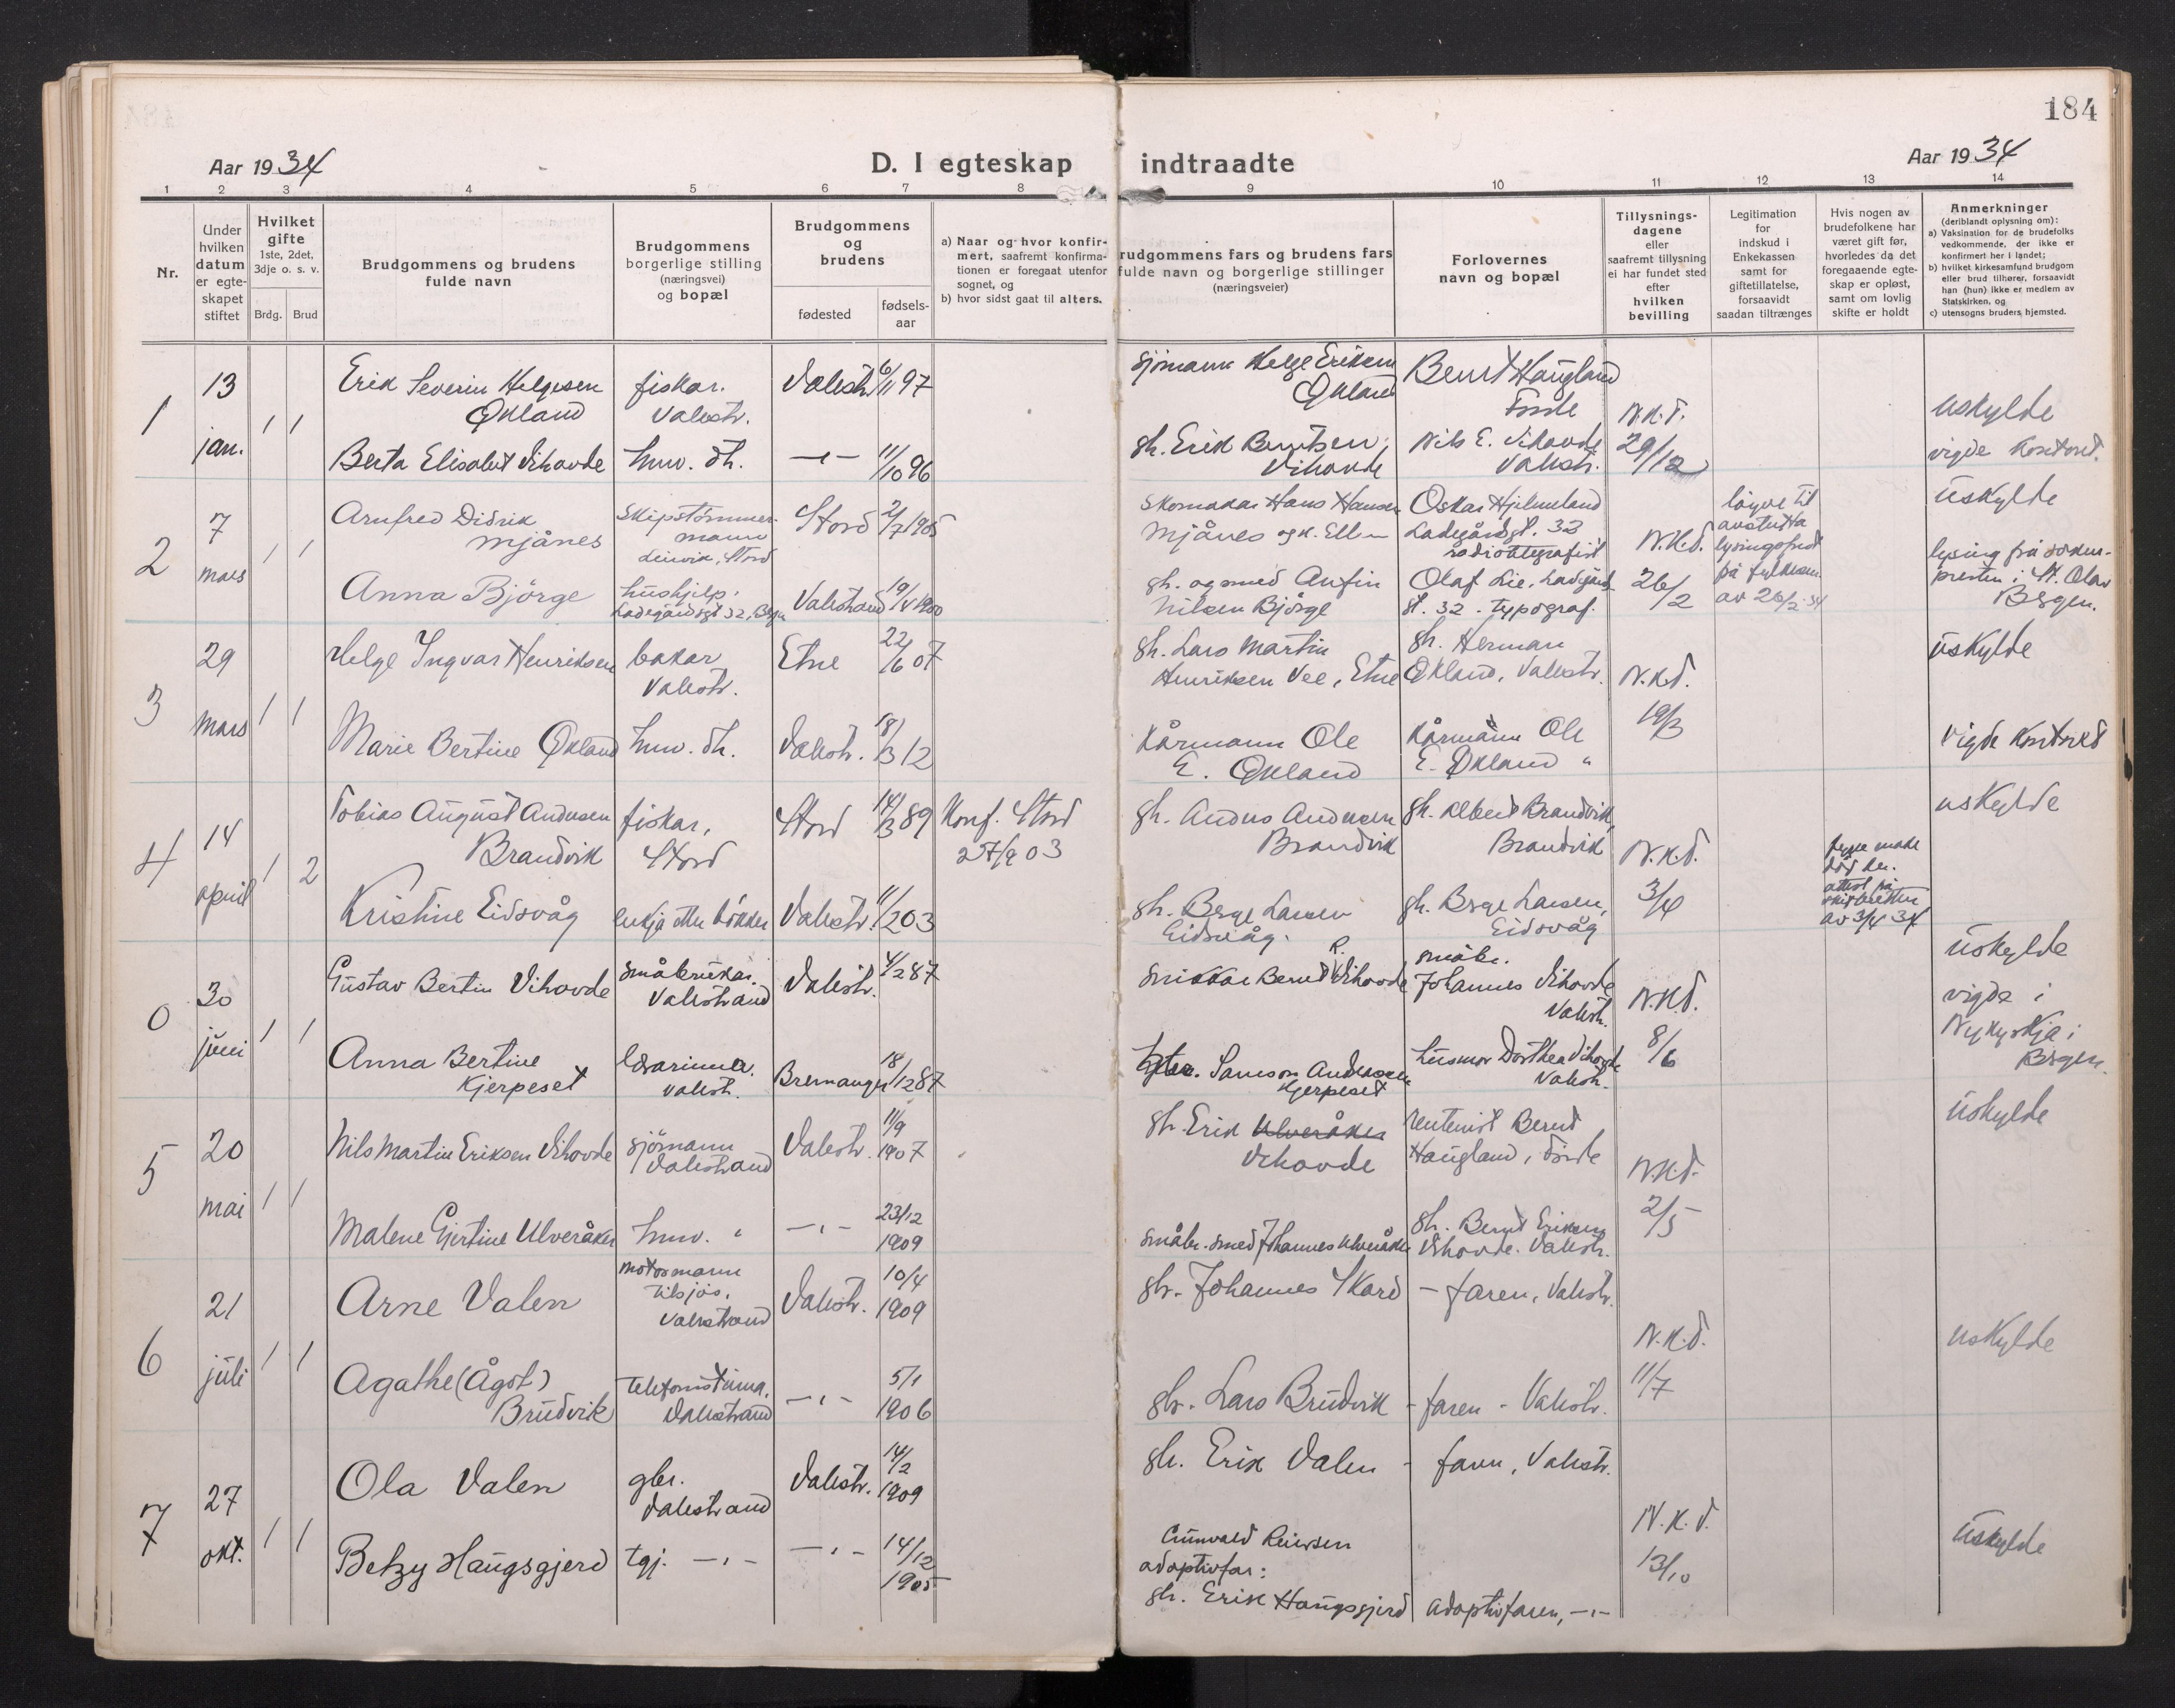 184
Aar 1934
D. I egteskap indtraadte
Aar 1934
1 2 3 4 5 6 7 8 9 10 11 12 13 14
Nr.
Under hvilken datum er egte-skapet stiftet
Hvilket gifte 1ste, 2det, 3dje o. s. v.
Brdg. Brud
Brudgommens og brudens fulde navn
Brudgommens borgerlige stilling (næringsvei) og bopæl
Brudgommens og brudens
fødested
fødsels-aar
a) Naar og hvor konfir-mert, saafremt konfirma-tionen er foregaat utenfor sognet, og
b) hvor sidst gaat til alters.
rudgommens fars og brudens fars fulde navn og borgerlige stillinger (næringsveier)
Forlovernes navn og bopæl
Tillysnings-dagene eller saafremt tillysning ei har fundet sted efter hvilken bevilling
Legitimation for indskud i Enkekassen samt for giftetillatelse, forsaavidt saadan tiltrænges
Hvis nogen av brudefolkene har været gift før, hvorledes da det foregaaende egte-skap er opløst, samt om lovlig skifte er holdt
Anmerkninger (deriblandt oplysning om):
a) Vaksination for de brudefolks vedkommende, der ikke er konfirmert her i landet;
b) hvilket kirkesamfund brudgom eller brud tilhører, forsaavidt han (hun) ikke er medlem av Statskirken, og
c) utensogns bruders hjemsted.
1
13 jan.
1 1
Erik Severin Helgesen Økland
fiskar. Valestr.
Valestr. 6/11 97
sjømann Helge Eriksen Økland
Bernt Haugland Förde
N.K.T.
uskylde
Berta Elisabet Vihovde
huv. dh.
—"— 11/10 96
gb. Erik Berntsen Vihovde
Nils E. Vihovde Valestr.
29/12
vigde kontoret.
2
7 mars
1 1
Arnfred Didrik Mjånes
Skipstömmermann Leirvik, Stord
Stord 2/7 1905
Skomakar Hans Hansen Mjånes og k. Ellen
Oskar Hjelmeland Ladegårdsgt. 32 radiotelegrafist
N.K.T.
löyve til avstutta lysingsfrist på fylkesm. av 26/2-34
uskylde
Anna Björge
hushjelp, Ladegårdsgt 32, Bergen
Valestrand 19/4 1900
gb. og smed Anfin Nilsen Björge
Olaf Lie, Ladegårdsgt. 32 - typograf.
26/2
lysing frå soknepresten i St. Olav Bergen.
3
29 mars
1 1
Helge Ingvar Henriksen
bakar Valestr.
Etne 22/6 07
gb. Lars Martin Henriksen Vee, Etne
gb. Herman Økland, Valestr.
N.K.T.
uskylde
Marie Bertine Økland
huv. dh.
Valestr. 18/3 12
Kårmann Ole E. Økland
Kårmann Ole E. Økland "
19/3
vigde kontoret
4
14 april
1 2
Tobias August Andersen Brandvik
fiskar, Stord
Stord 14/3 89
Konf. Stord 27/9 03
gb. Anders Andersen Brandvik
gb. Albert Brandvik, Brandvik
N.K.T.
uskylde
Kristine Eidsvåg
enkja etter bökker
Valestr. 11/2 03
gb. Berge Larsen Eidsvåg.
gb. Berge Larsen, Eidsvåg
3/4
attest frå skifteretten av 3/4 34
0
30 juni
1 1
Gustav Bertin Vihovde
småbrukar. Valestrand
Valestr. 4/2 87
Snikkar Bernt R. Vihovde
småbr. Johannes Vihovde Valestr.
N.K.T.
uskylde
Anna Bertine Kjerpeset
lærarinna. Valestr.
Bremanger 18/12 87
Samson Andersen Kjerpeset
husmor Dorthea Vihovde Valestr.
8/6
vigde i Nykyrkja i Bergen.
5
20 mai
1 1
Nils Martin Eriksen Vihovde
sjömann Valestrand
Valestr. 11/9 1907
gb. Erik Ulveråker Vihovde
rentenist Bernt Haugland, Förde
N.K.T.
uskylde
Malene Gjertine Ulveråker
huv. "
—"— 23/12 1909
småbr. smed Johannes Ulveråker
gb. Bernt Eriksen Vihovde. Valestr.
2/5
6
21 juli
1 1
Arne Valen
motormann tilsjös, Valestrand
Valestr. 10/4 1909
gb. Johannes Skard
- faren, Valestr.
N.K.T.
uskylde
Agathe (Ågot) Brudvik
telefonistinna. Valestrand
—"— 5/1 1906
gb. Lars Brudvik
- faren - Valestr.
11/7
7
27 okt.
1 1
Ola Valen
gbr. Valestrand
Valestr. 14/2 1909
gb. Erik Valen
- faren, Valestr.
N.K.T.
uskylde
Betzy Haugsgjerd
tgj. —"—
—"— 14/12 1905
adoptivfar: gb. Erik Haugsgjerd
adoptivfaren, —"—
13/10